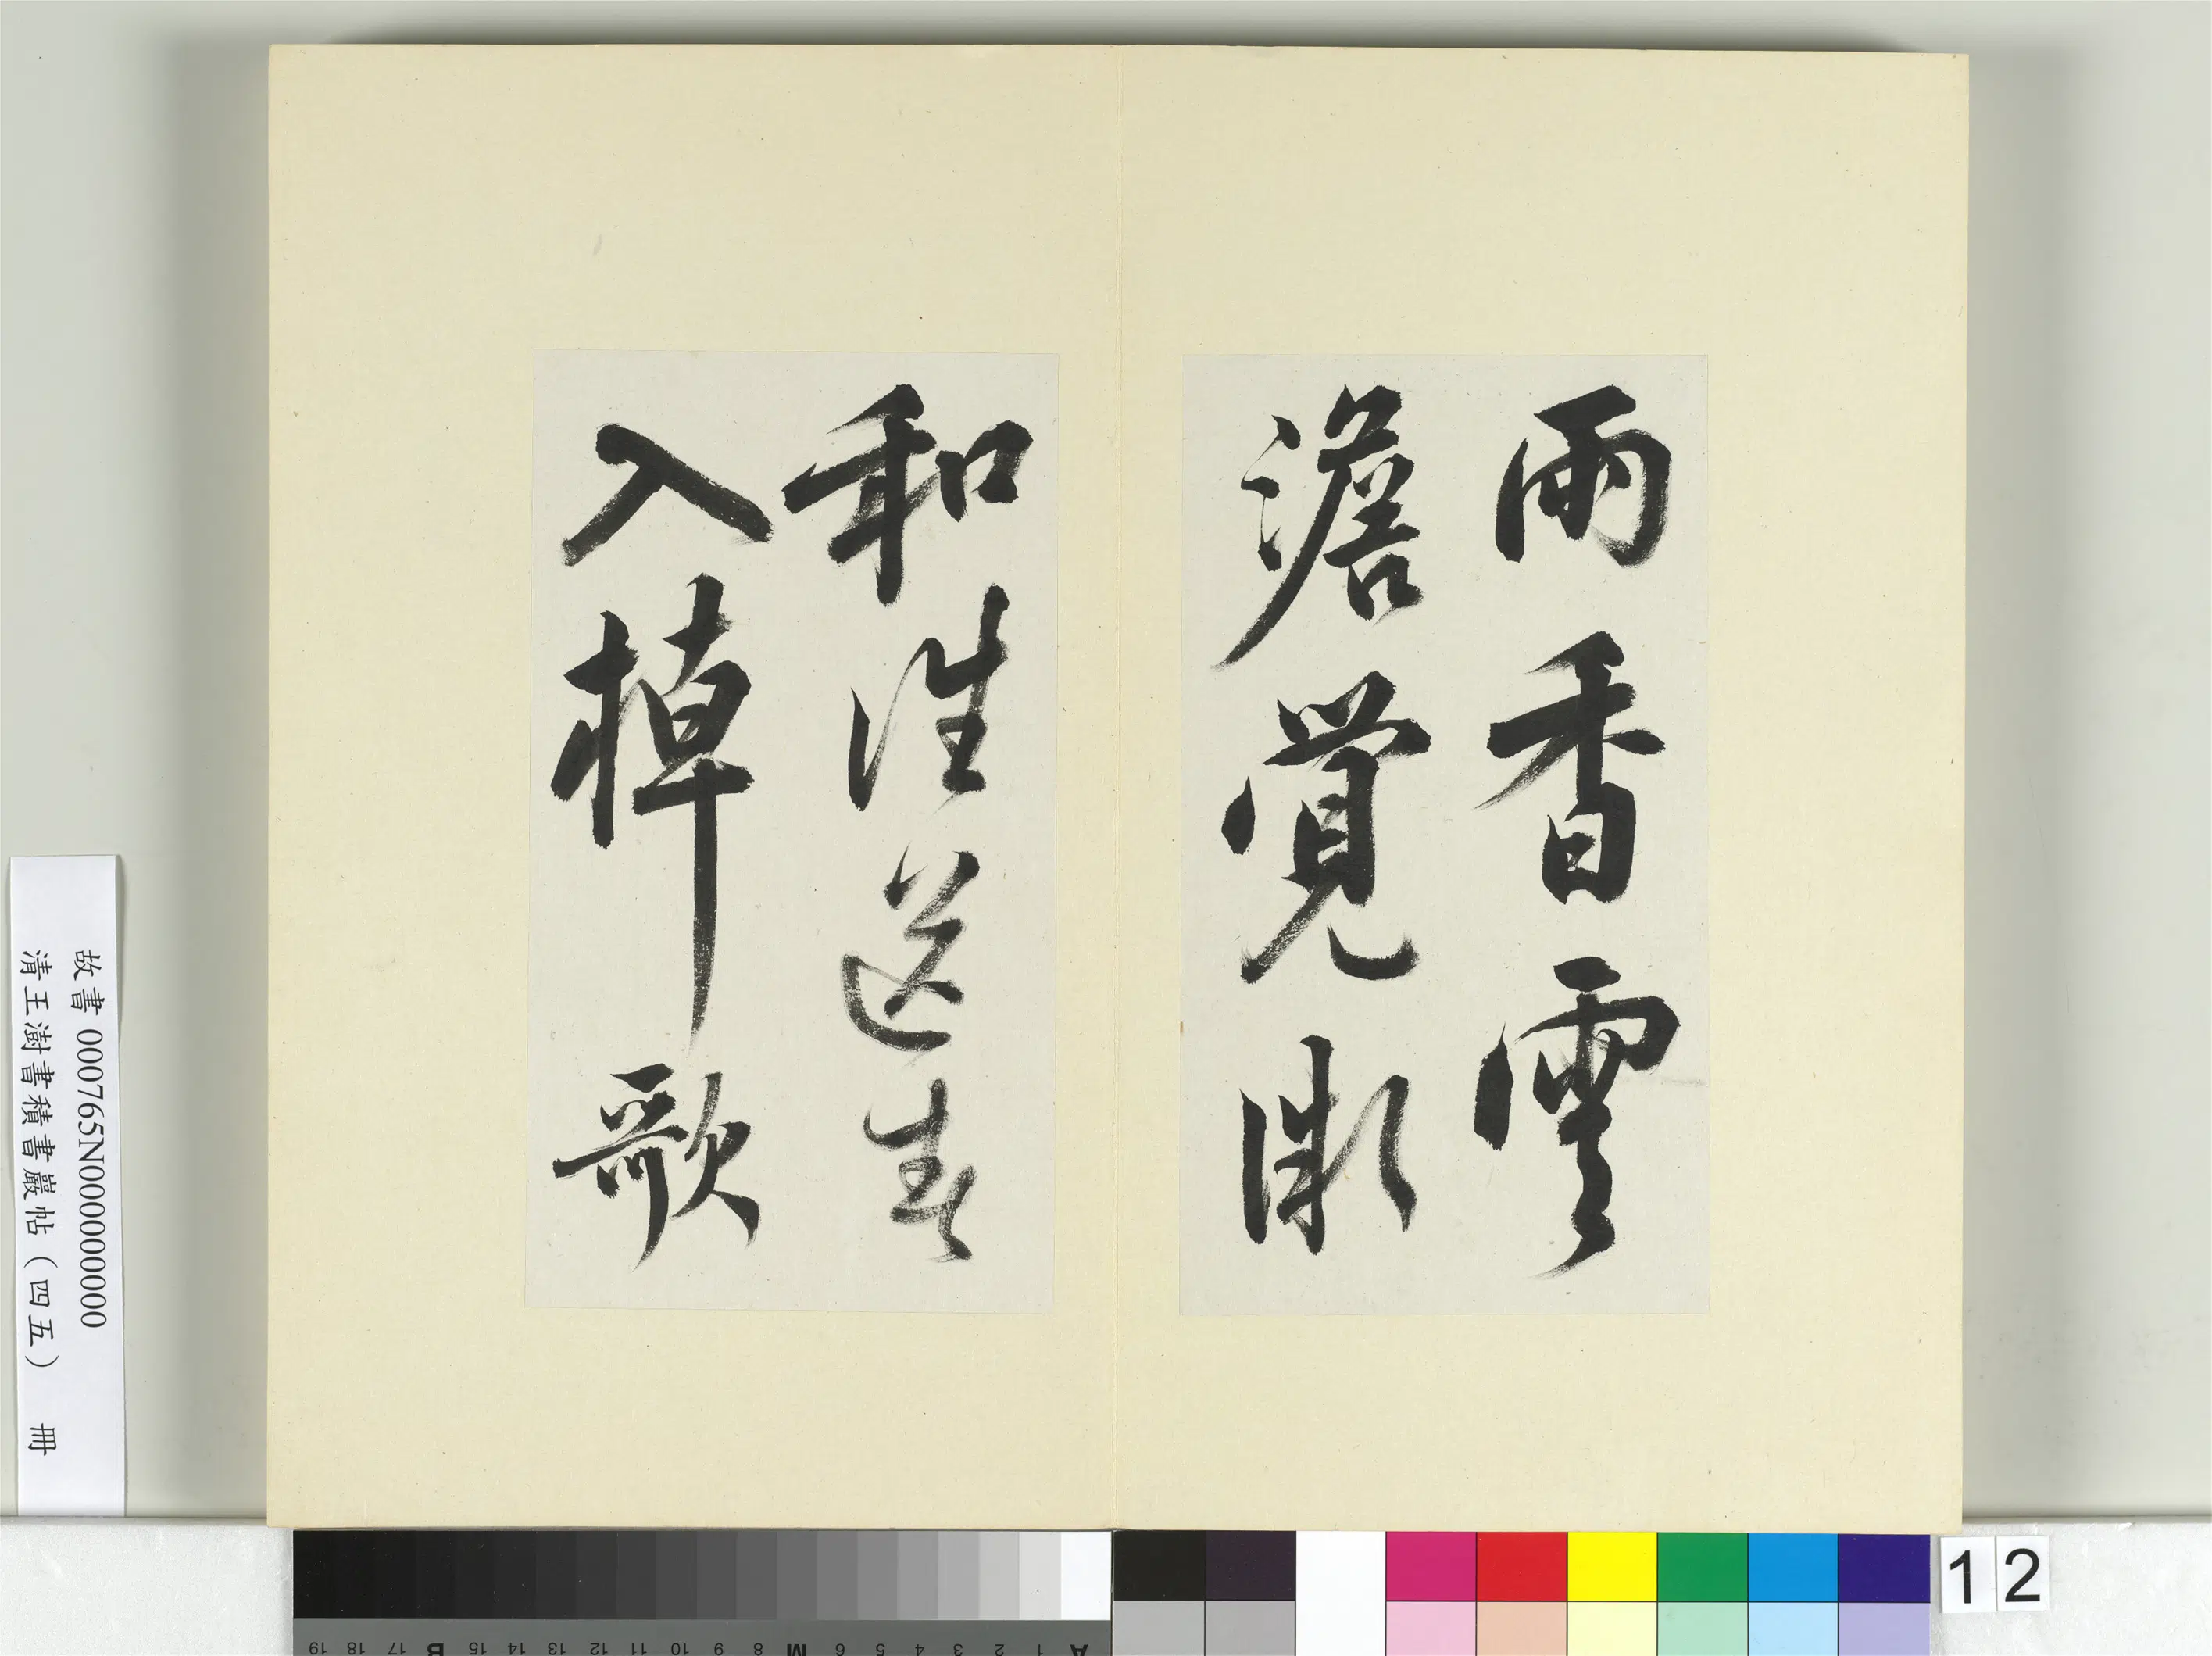 雨香雲
澹覺微
和誰送春
入棹歌
故書 000765N000000000
清王澍書積書巖帖（四五） 冊
12
A 1 2 3 4 5 6 M 8 9 10 11 12 13 14 15 B 17 18 19